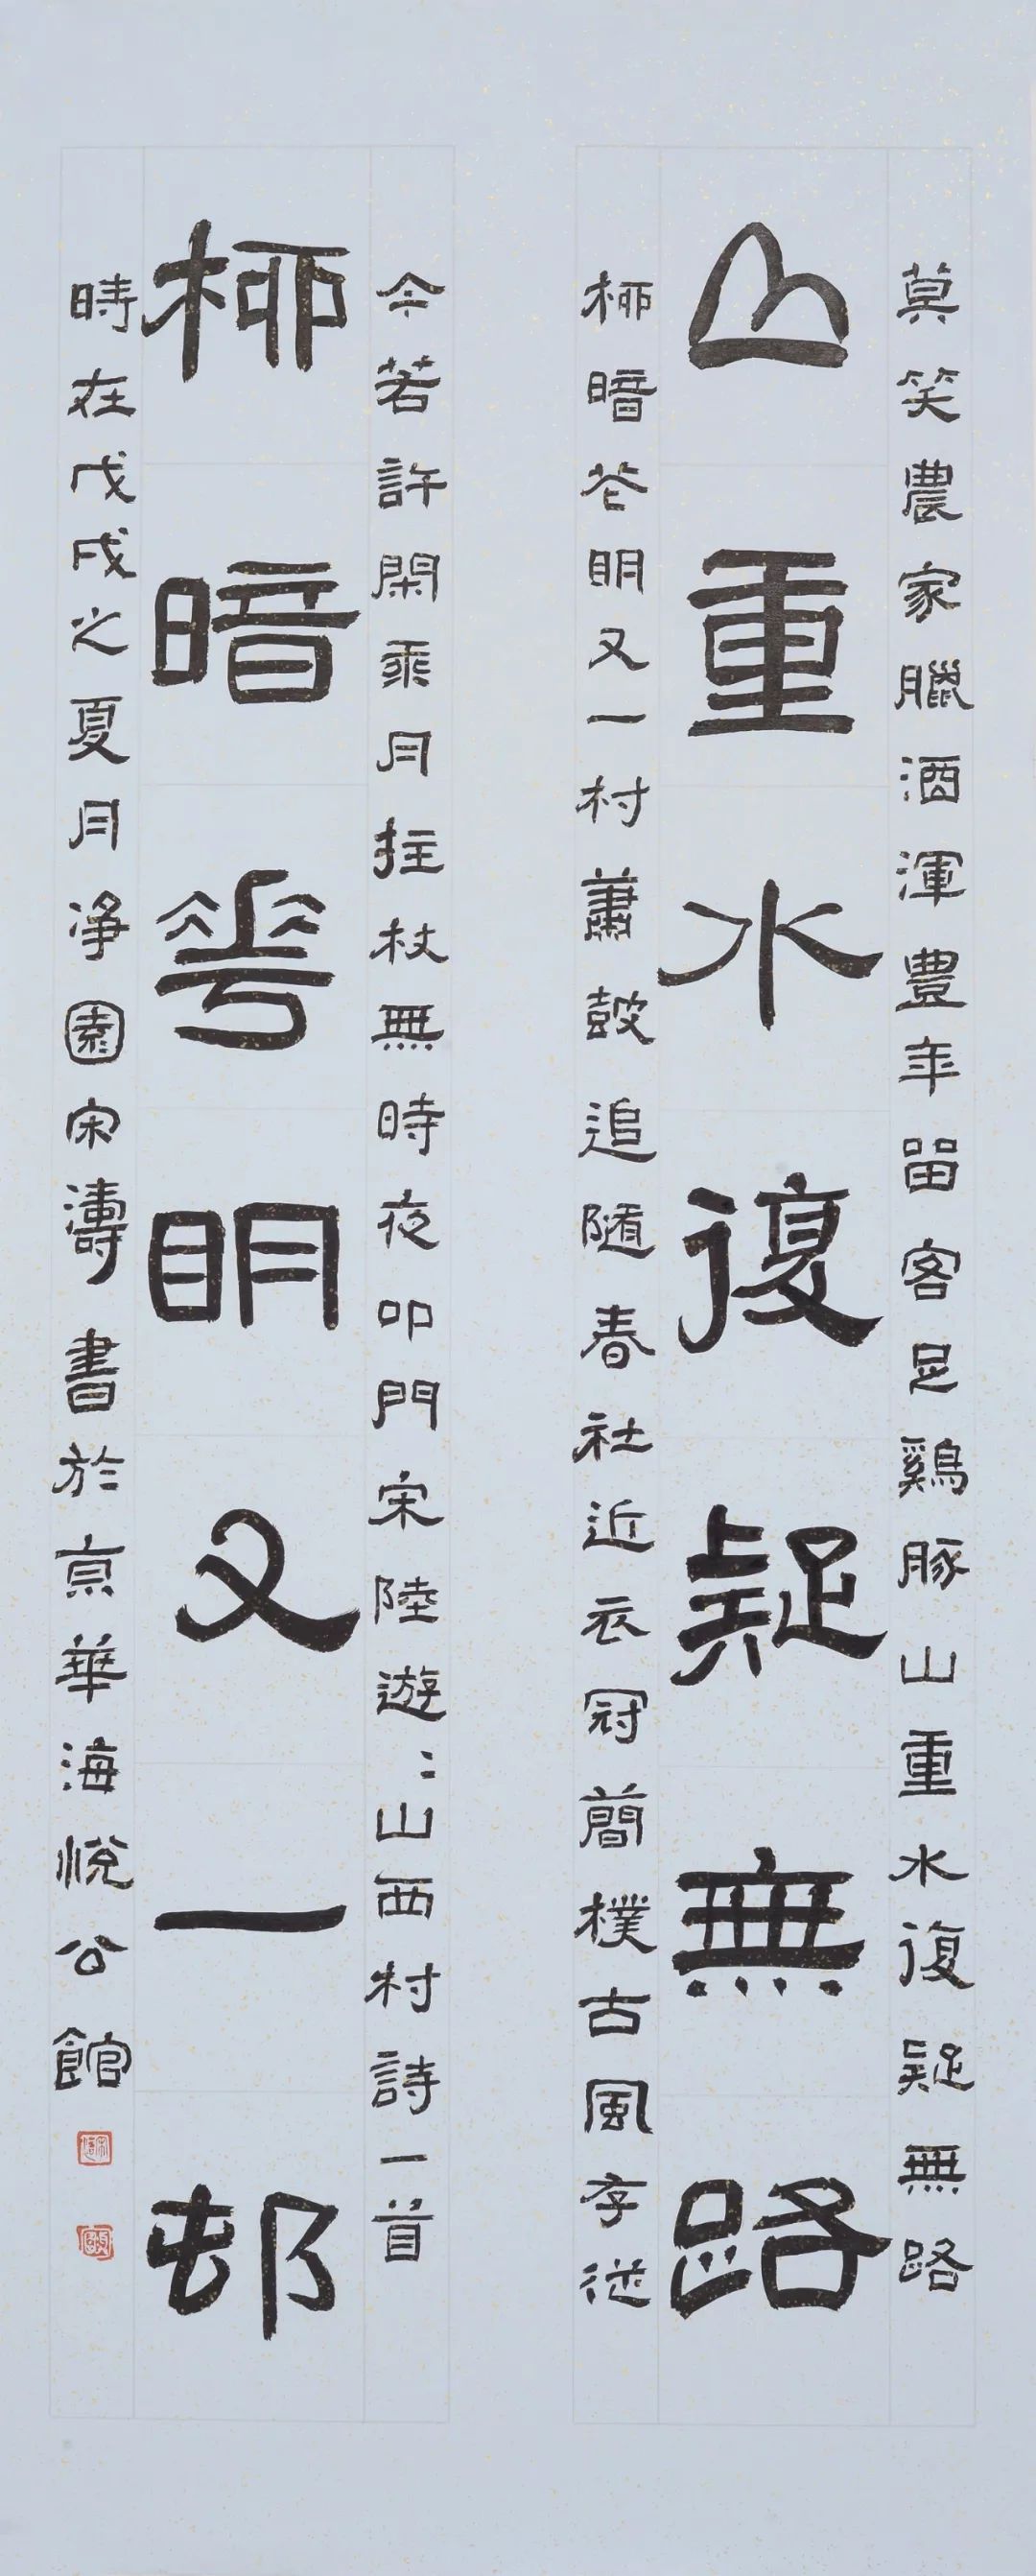 莫笑農家臘酒渾豊年留客足鷄豚山重水復疑無路
山重水復疑無路
柳暗花明又一村蕭鼓追隨春社近衣冠簡樸古風存從
今若許閑乘月拄杖無時夜叩門宋陸遊〻山西村詩一首
柳暗花明又一邨
時在戊戌之夏月净園宋濤書於京華海悅公館